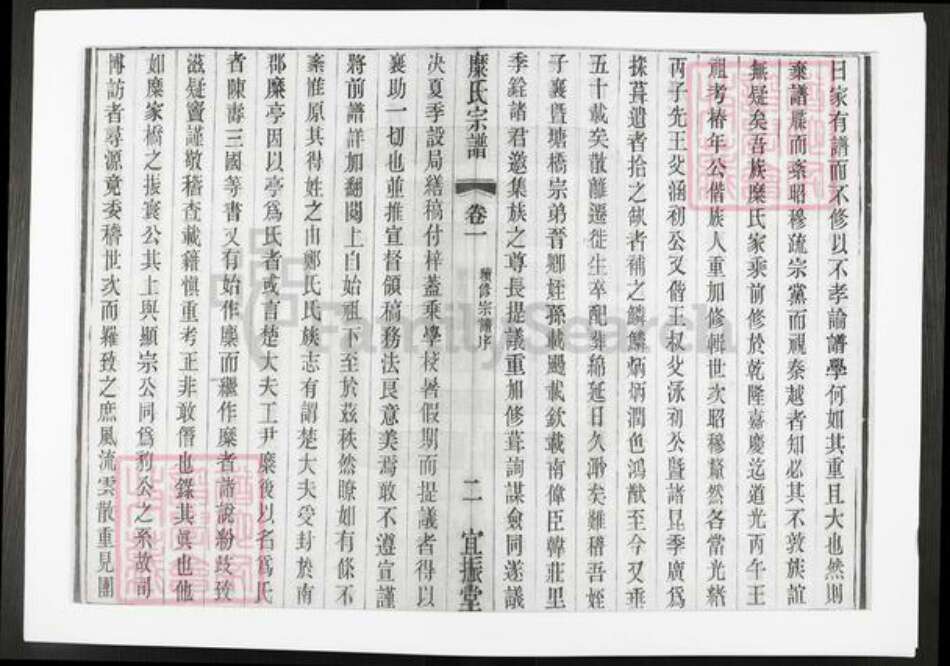 曰家有譜而不修以不孝論譜學何如其重且大也然則
棄譜牒而紊昭穆疏宗黨而視秦越者知必其不敦族誼
無疑矣吾族糜氏家乘前修於乾隆嘉慶迄道光丙午王
祖考椿年公偕族人重加修輯世次昭穆釐然各當光緒
丙子先王父涵初公又偕王叔父泳初公暨諸昆季廣爲
採葺遺者拾之缺者補之鱗鱗炳炳潤色鴻猷至今又垂
五十載矣散離遷徙生卒配葬綿延日久渺矣難稽吾姪
子襄暨塘橋宗弟晉卿姪孫載颺載欽載南偉臣韓莊里
季銓諸君邀集族之尊長提議重加修葺詢謀僉同遂議
糜氏宗譜 卷一 續修宗譜序 二 宜振堂
决夏季設局繕稿付梓蓋乘學校暑假期而提議者得以
襄助一切也並推宣督領稿務法良意美焉敢不遵宣謹
將前譜詳加翻閱上自始祖下至於茲秩然瞭如有條不
紊惟原其得姓之由鄭氏氏族志有謂楚大夫受封於南
郡糜亭因以亭爲氏者或言楚大夫工尹糜後以名爲氏
者陳壽三國等書又有始作麋而繼作糜者諸說紛歧致
滋疑竇謹敬稽查載籍愼重考正非敢僭也鐸其眞也他
如糜家橋之振寰公其上與顯宗公同爲豹公之系故司
博訪者尋源竟委稽世次而羅致之庶風流雲散重見團
FamilySearch